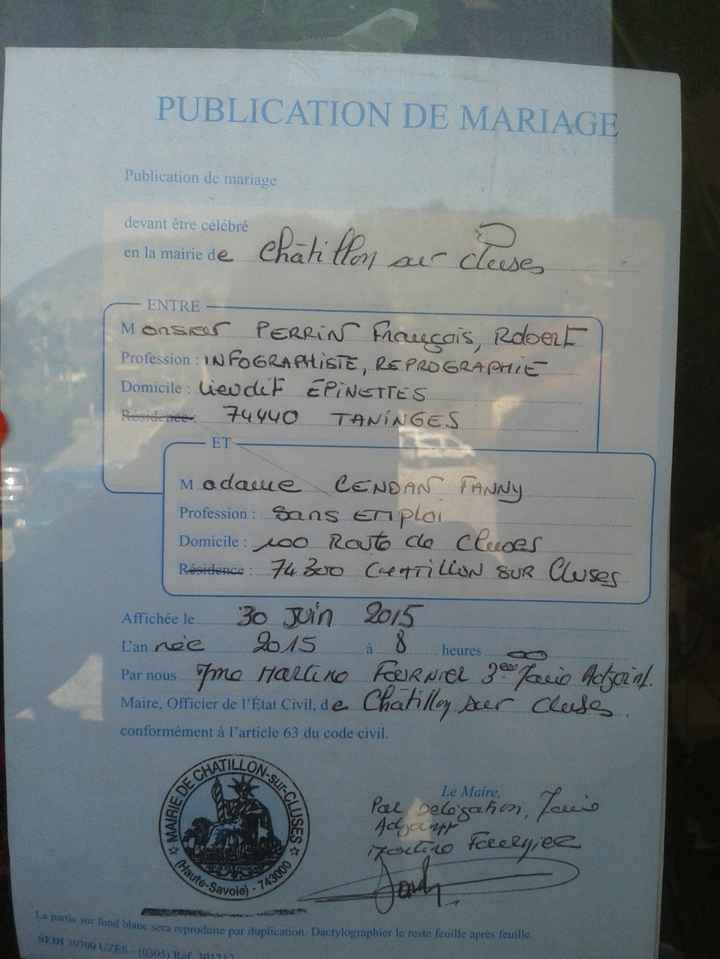 PUBLICATION DE MARIAGE
Publication de mariage
devant être célébré
en la mairie de Châtillon sur Cluses
ENTRE
Monsieur PERRIN François, Robert
Profession : INFOGRAPHISTE, REPROGRAPHIE
Domicile : Lieudit EPINETTES
Résidence 74440 TANINGES
ET
Madame CENDAN FANNY
Profession : Sans EMPloi
Domicile : 100 Route de Cluses
Résidence : 74300 CHATILLON SUR Cluses
Affichée le 30 Juin 2015
L'an née 2015 à 8 heures 00
Par nous Mme Martine FOURNIER 3ème Maire Adjoint.
Maire, Officier de l'État Civil, de Châtillon sur Cluses.
conformément à l'article 63 du code civil.
MAIRIE DE CHATILLON-sur-CLUSES
(Haute-Savoie) - 743000
Le Maire,
Par Délégation, Maire
Adjoint
Martine Fournier
La partie sur fond blanc sera reproduite par duplication. Dactylographier le reste feuille après feuille.
SEDI 30700 UZÈS - (0305) Réf.